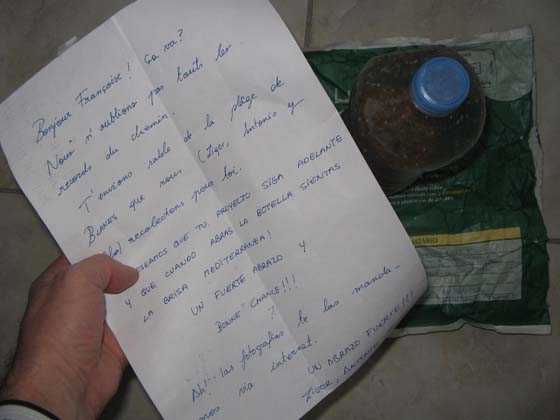 Bonjour Françoise! Ça va?
Nous n'oublions pas touts les
records du chemin.
T'envions sable de la plage de
BLANES que nous (Zigor, Antonio y
recolectons para toi.
DESEAMOS QUE TU PROYECTO SIGA ADELANTE
Y QUE CUANDO ABRAS LA BOTELLA SIENTAS
LA BRISA MEDITERRANEA!
UN FUERTE ABRAZO Y
BONNE CHANCE!!!
?
Ah!.. las fotografias te las manda-
mos via internet.
UN ABRAZO FUERTE!!!
ZIGOR, ANTONIO